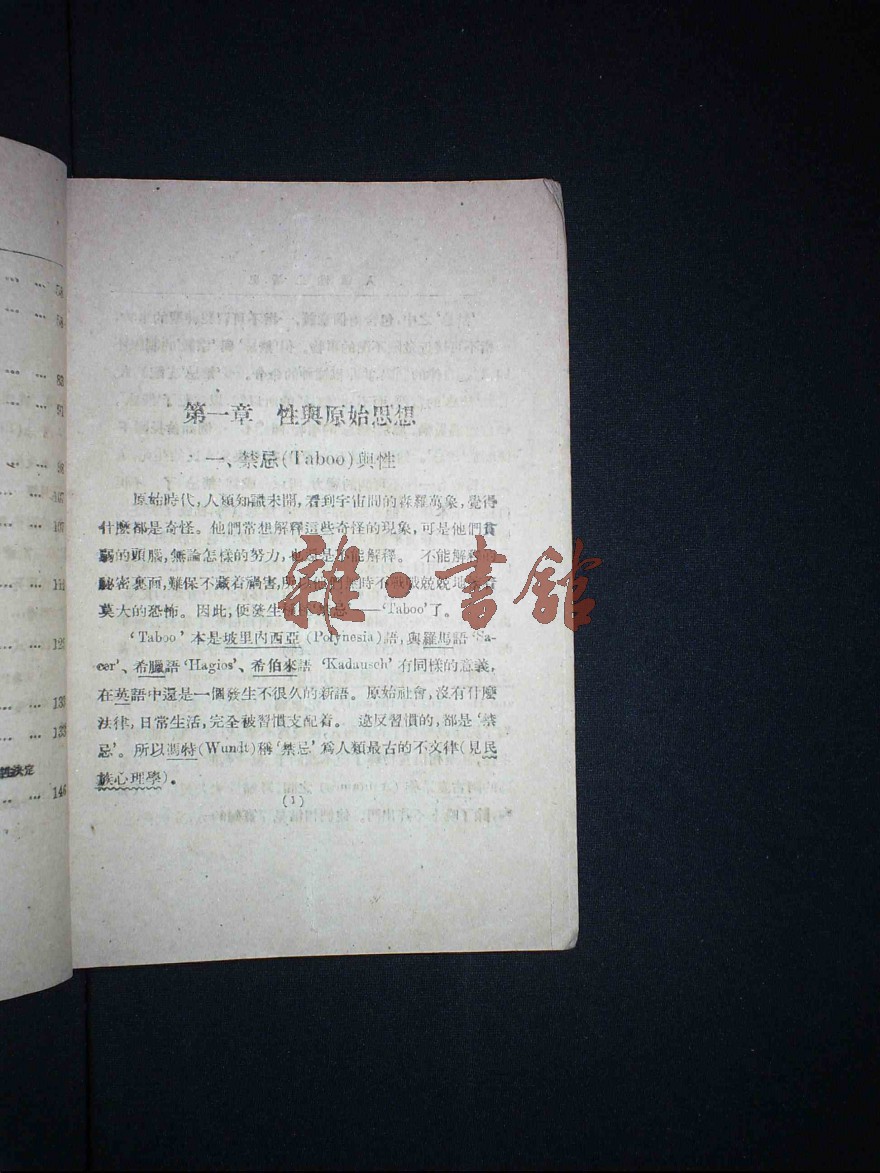 … 58
… 58
… … 82
… … 91
… … 98
… … 107
… … 107
… … 111
… … 133
… … 133
性決定
… … 146
第一章 性與原始思想
一、禁忌(Taboo)與性
原始時代,人類知識未開,看到宇宙間的森羅萬象,覺得
什麼都是奇怪。他們常想解釋這些奇怪的現象,可是他們貧
窮的頭腦,無論怎樣的努力,也是不能解釋。 不能解釋的
秘密裏面,難保不藏着禍害,所以他們無時不戰戰兢兢地
莫大的恐怖。因此,便發生‘禁忌’——‘Taboo’了。
‘Taboo’本是坡里內西亞(Polynesia)語,與羅馬語‘Sa-
cer’、希臘語‘Hagios’、希伯來語‘Kadausch’有同樣的意義,
在英語中還是一個發生不很久的新語。原始社會,沒有什麼
法律,日常生活,完全被習慣支配着。 違反習慣的,都是‘禁
忌’。所以馮特(Wundt)稱‘禁忌’爲人類最古的不文律(見民
族心理學)。
(1)
雜·書館